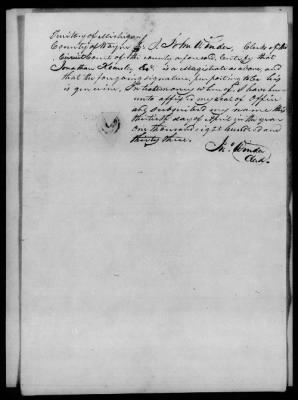 Territory of Michigan
County of Wayne ss. I John Winder, Clerk of the
Circuit Court of the county aforesaid, Certify that
Jonathan Kearsley Esq. is a Magistrate as above, and
that the foregoing signature, purporting to be his
is genuine. In testimony whereof I have here-
unto affixed my seal of Office
and subscribed my name this
thirtieth day of April in the year
one thousand eight hundred and
thirty three.
Jno. Winder
Clerk.